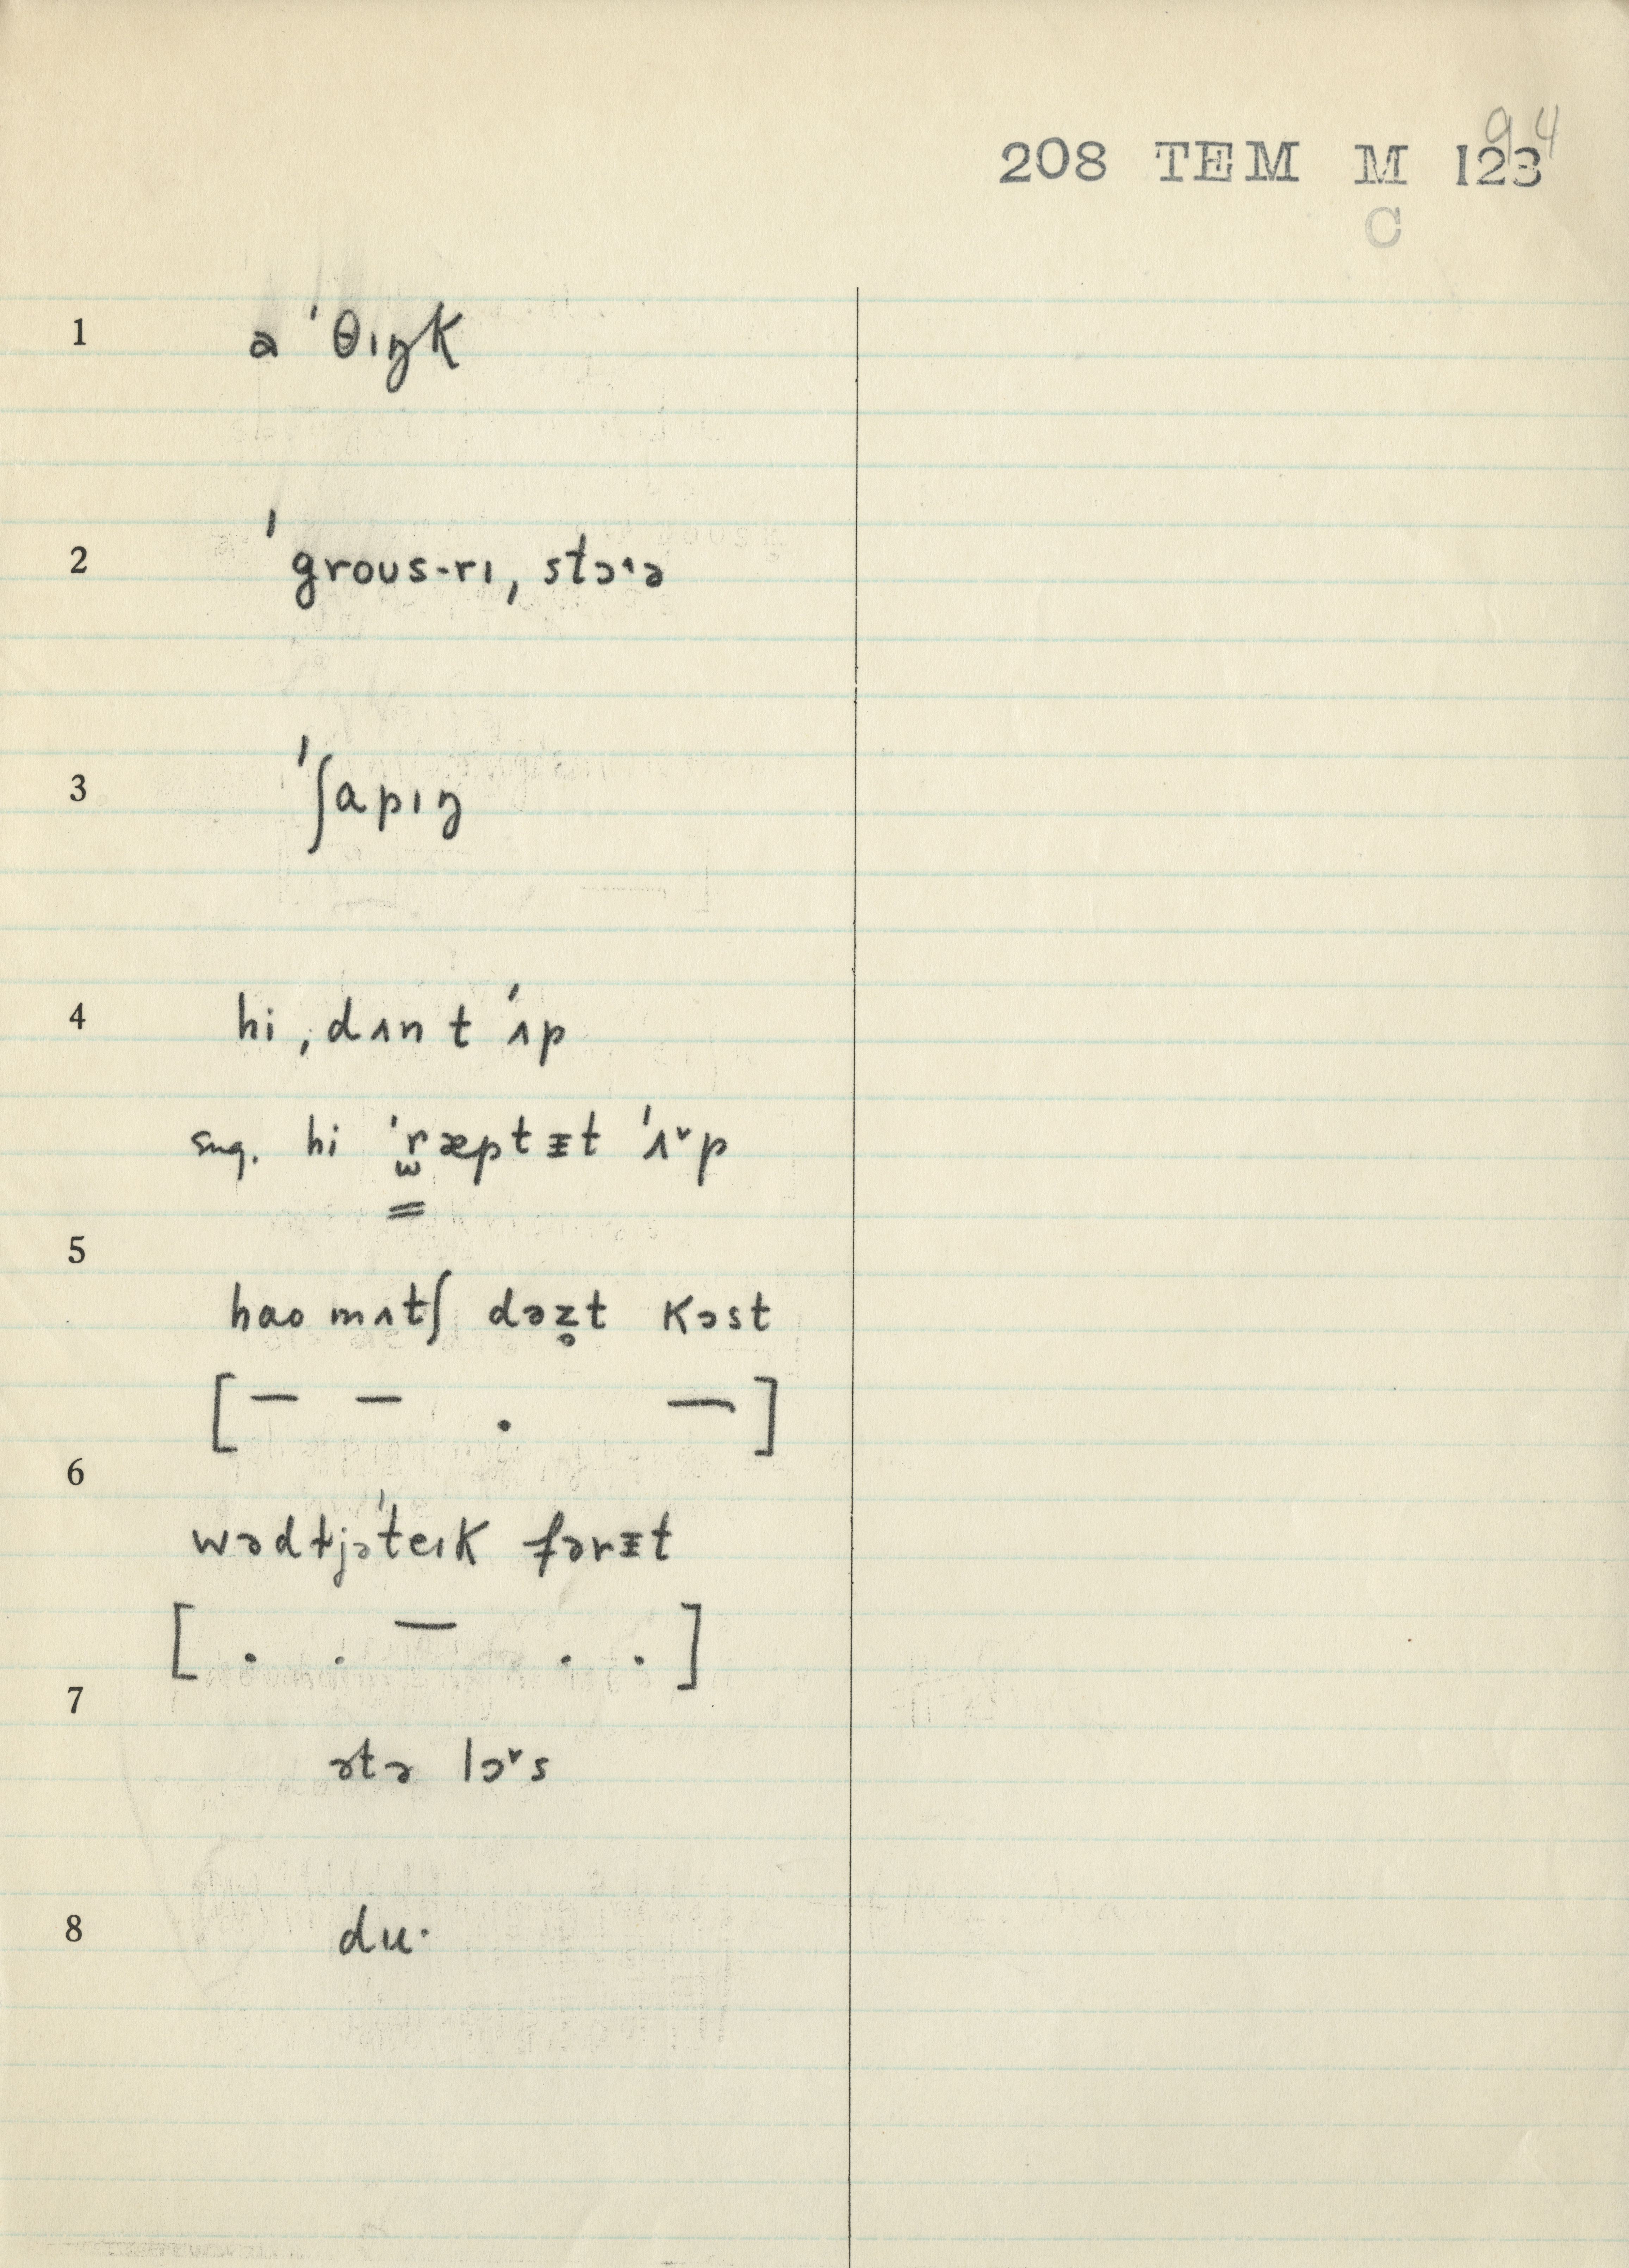 94
208 TEM M 123
C
1 a ˈθɪŋk
2 ˈgroʊs-rɪ, stɔ˄ə
3 ˈʃapɪŋ
4 hi ˌdʌn t ˈʌp
sug. hi ˈr̫æptᵻt ˈʌ˅p
5
hao mʌtʃ dəz̥t kɔst
[— — . —]
6
wədɨjəˈteɪk fərᵻt
[. . — . .]
7
ətə lɔ˅s
8 du·